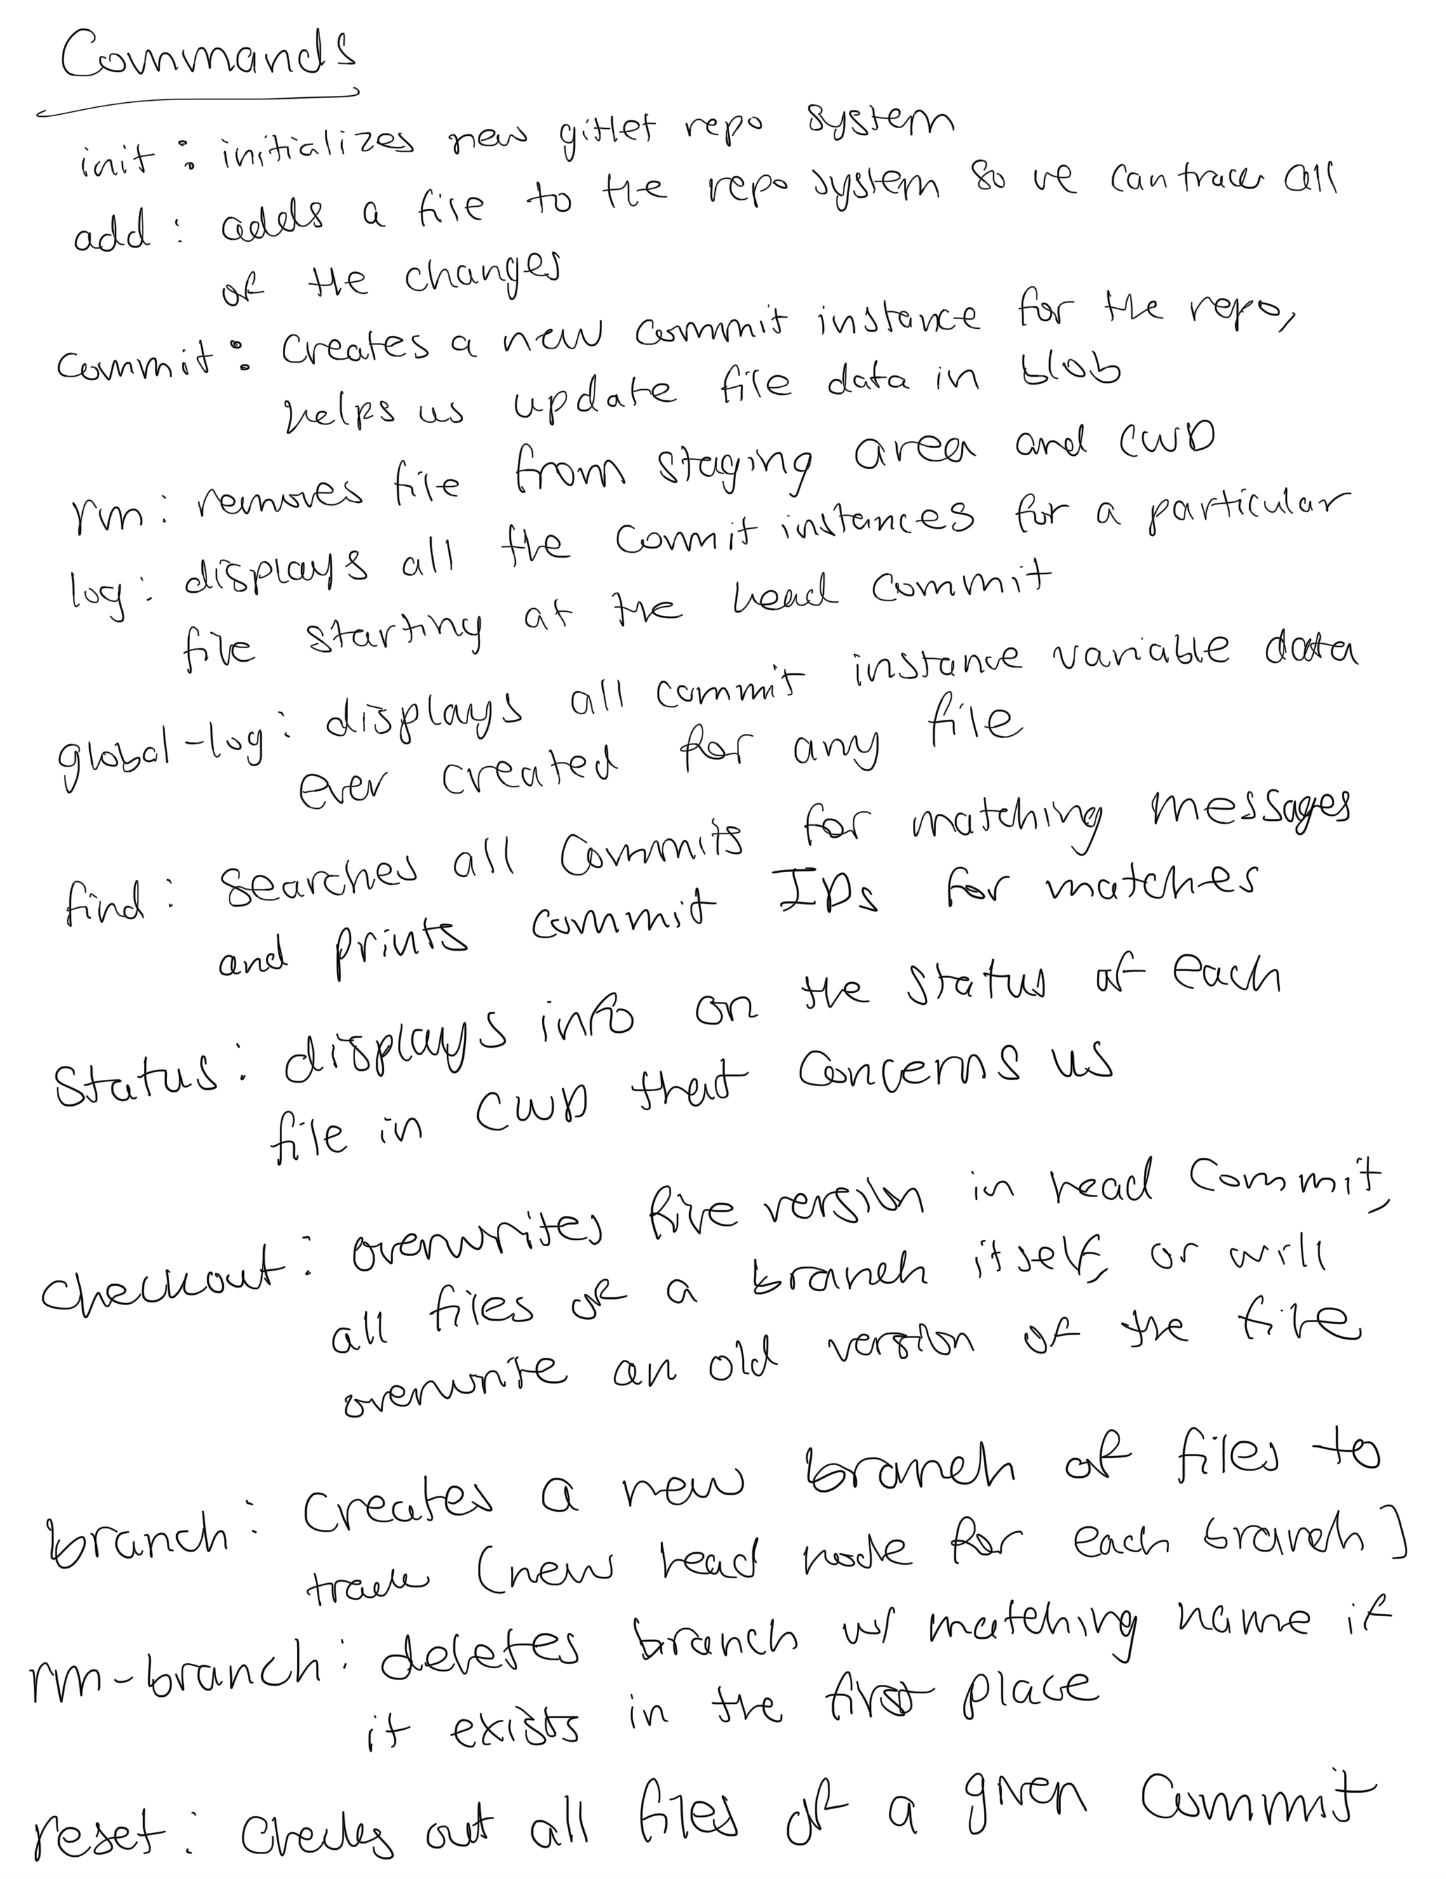 Commands
init : initializes new gitlet repo system
add : adds a file to the repo system so we can track all
of the changes
commit : creates a new commit instance for the repo,
helps us update file data in blob
rm : removes file from staging area and CWD
log : displays all the commit instances for a particular
file starting at the head commit
global-log : displays all commit instance variable data
ever created for any file
find : searches all commits for matching messages
and prints commit IDs for matches
Status : displays info on the status of each
file in CWD that concerns us
checkout : overwrites file version in head commit,
all files of a branch itself, or will
overwrite an old version of the file
branch : creates a new branch of files to
track (new head node for each branch)
rm-branch : deletes branch w/ matching name if
it exists in the first place
reset : checks out all files of a given commit